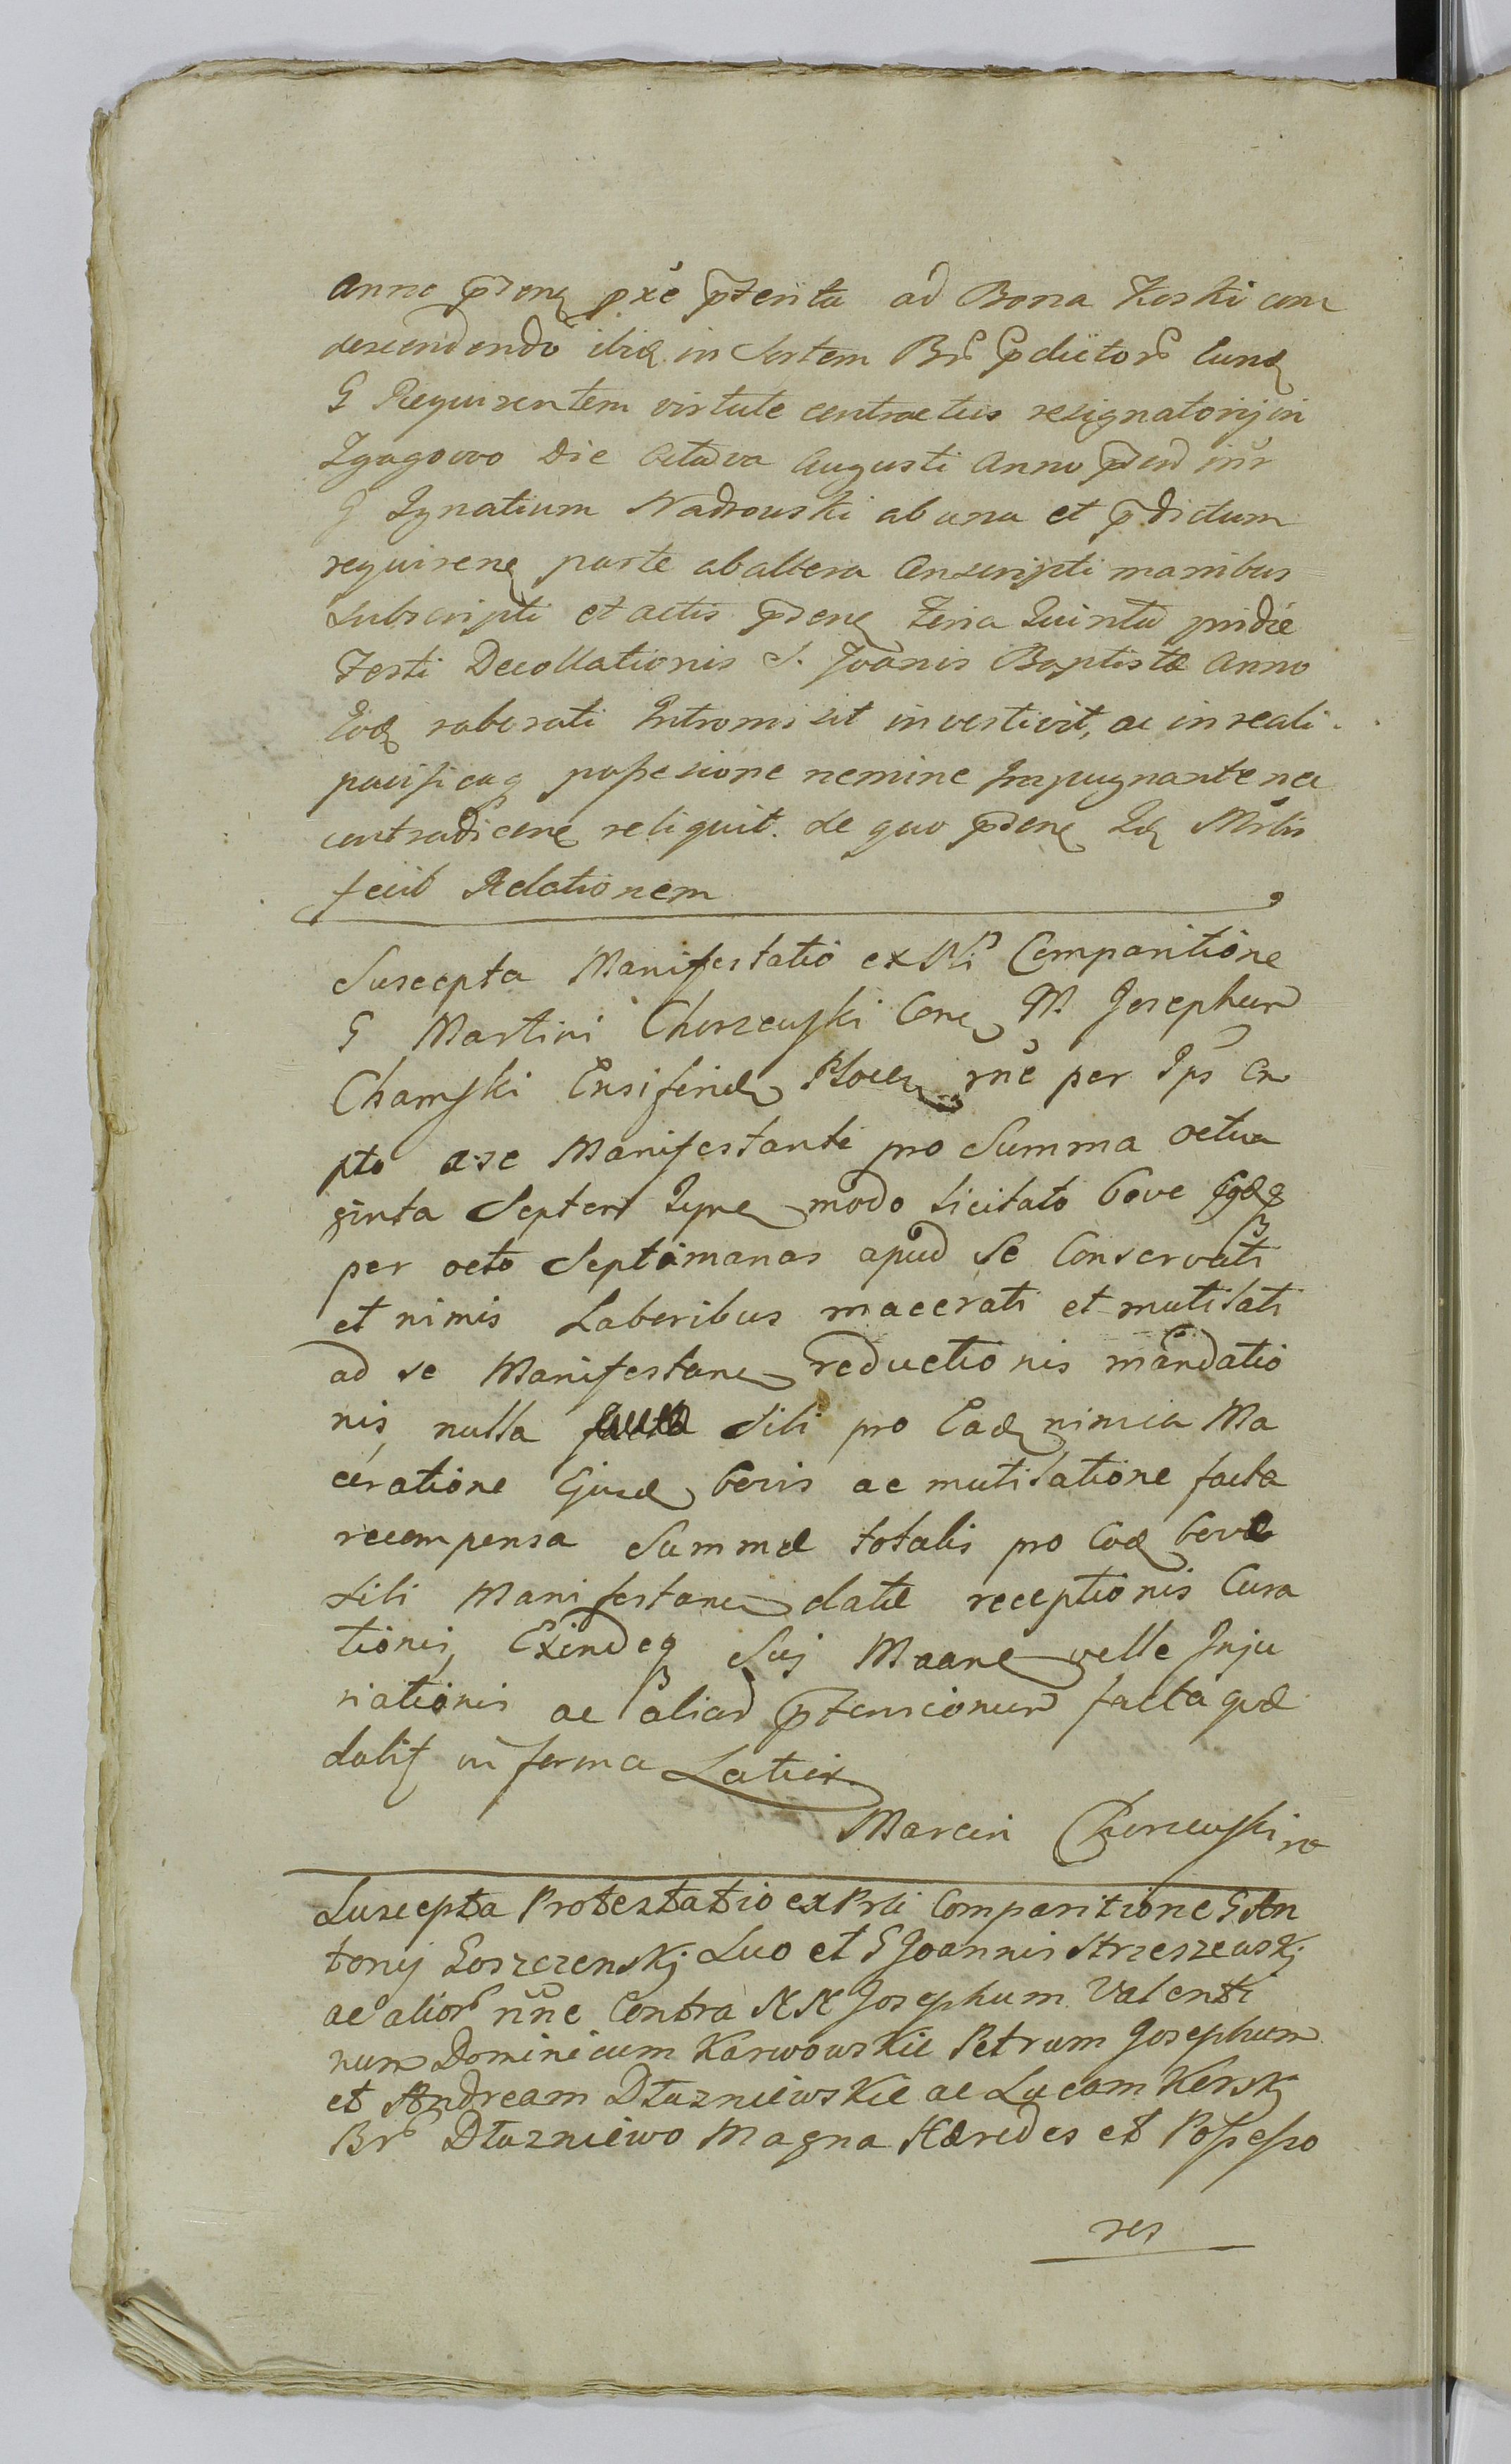 Anno pden pxe pterita ad Bona Koski con
descendendo ibiq in Sortem Br pdictor Eund
G Requirentem virtute contractus resignatorij in
Zgagowo Die Octava Augusti Anno pden inr
G Ignatium Nadrouski ab una et pdictum
requirene parte ab altera Conscripti manibus
Subscripti et actis pdene Feria Quinta pridie
Festi Decollationis S. Joanis Baptistæ Anno
Eod roborati Intromisit investivit, ac in reali
pacificaq possesione nemine Impugnante nec
contradicene reliquit. de quo pdene Id Mrlis
fecit Relationem
Suscepta Manifestatio ex Comparitione
G Martini Chorzewski Con M. Josephum
Chamski Ensiferid Ploce rne per Ips Em
pto a se Manifestante pro Summa octua
ginta Septem Tymf modo licitato bove
per octo Septimanas apud Se Conservati
et nimis Laboribus macerati et mutilati
ad se Manifestane reductionis mandatio
nis, nulla Sibi pro Ead nimia Ma
ceratione Ejusd bovis ac mutilatione facta
recompensa Summæ totalis pro Eod bove
sibi Manifestane datæ receptionis Cura
tionis, Exindeq Sui Maane velle Inju
riationis ac aliar ptensionum facta quæ
dabit in forma Latior
Marcin Chorzewski
Suscepta Protestatio ex Prli Comparitione G An
tonij Goszczenskj Suo et G Joannis Strzeszewskj
ac alior nne Contra NN Josephum Valenti
num Dominicum Karwowskie Petrum Josephum
et Andream Dłuzniewskie ac Lucam Kerskj
Br Dłuzniewo Magna Hæredes et Possesso
res